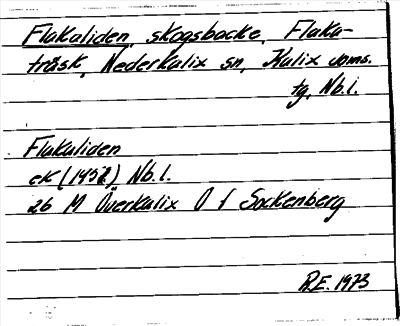 Flakaliden, skogsbacke, Flaka-
träsk, Nederkalix sn, Kalix doms.
tg, Nb.l.
Flakaliden
ek (1958) Nb.l.
26 M Överkalix O f Sockenberg
R.E. 1973